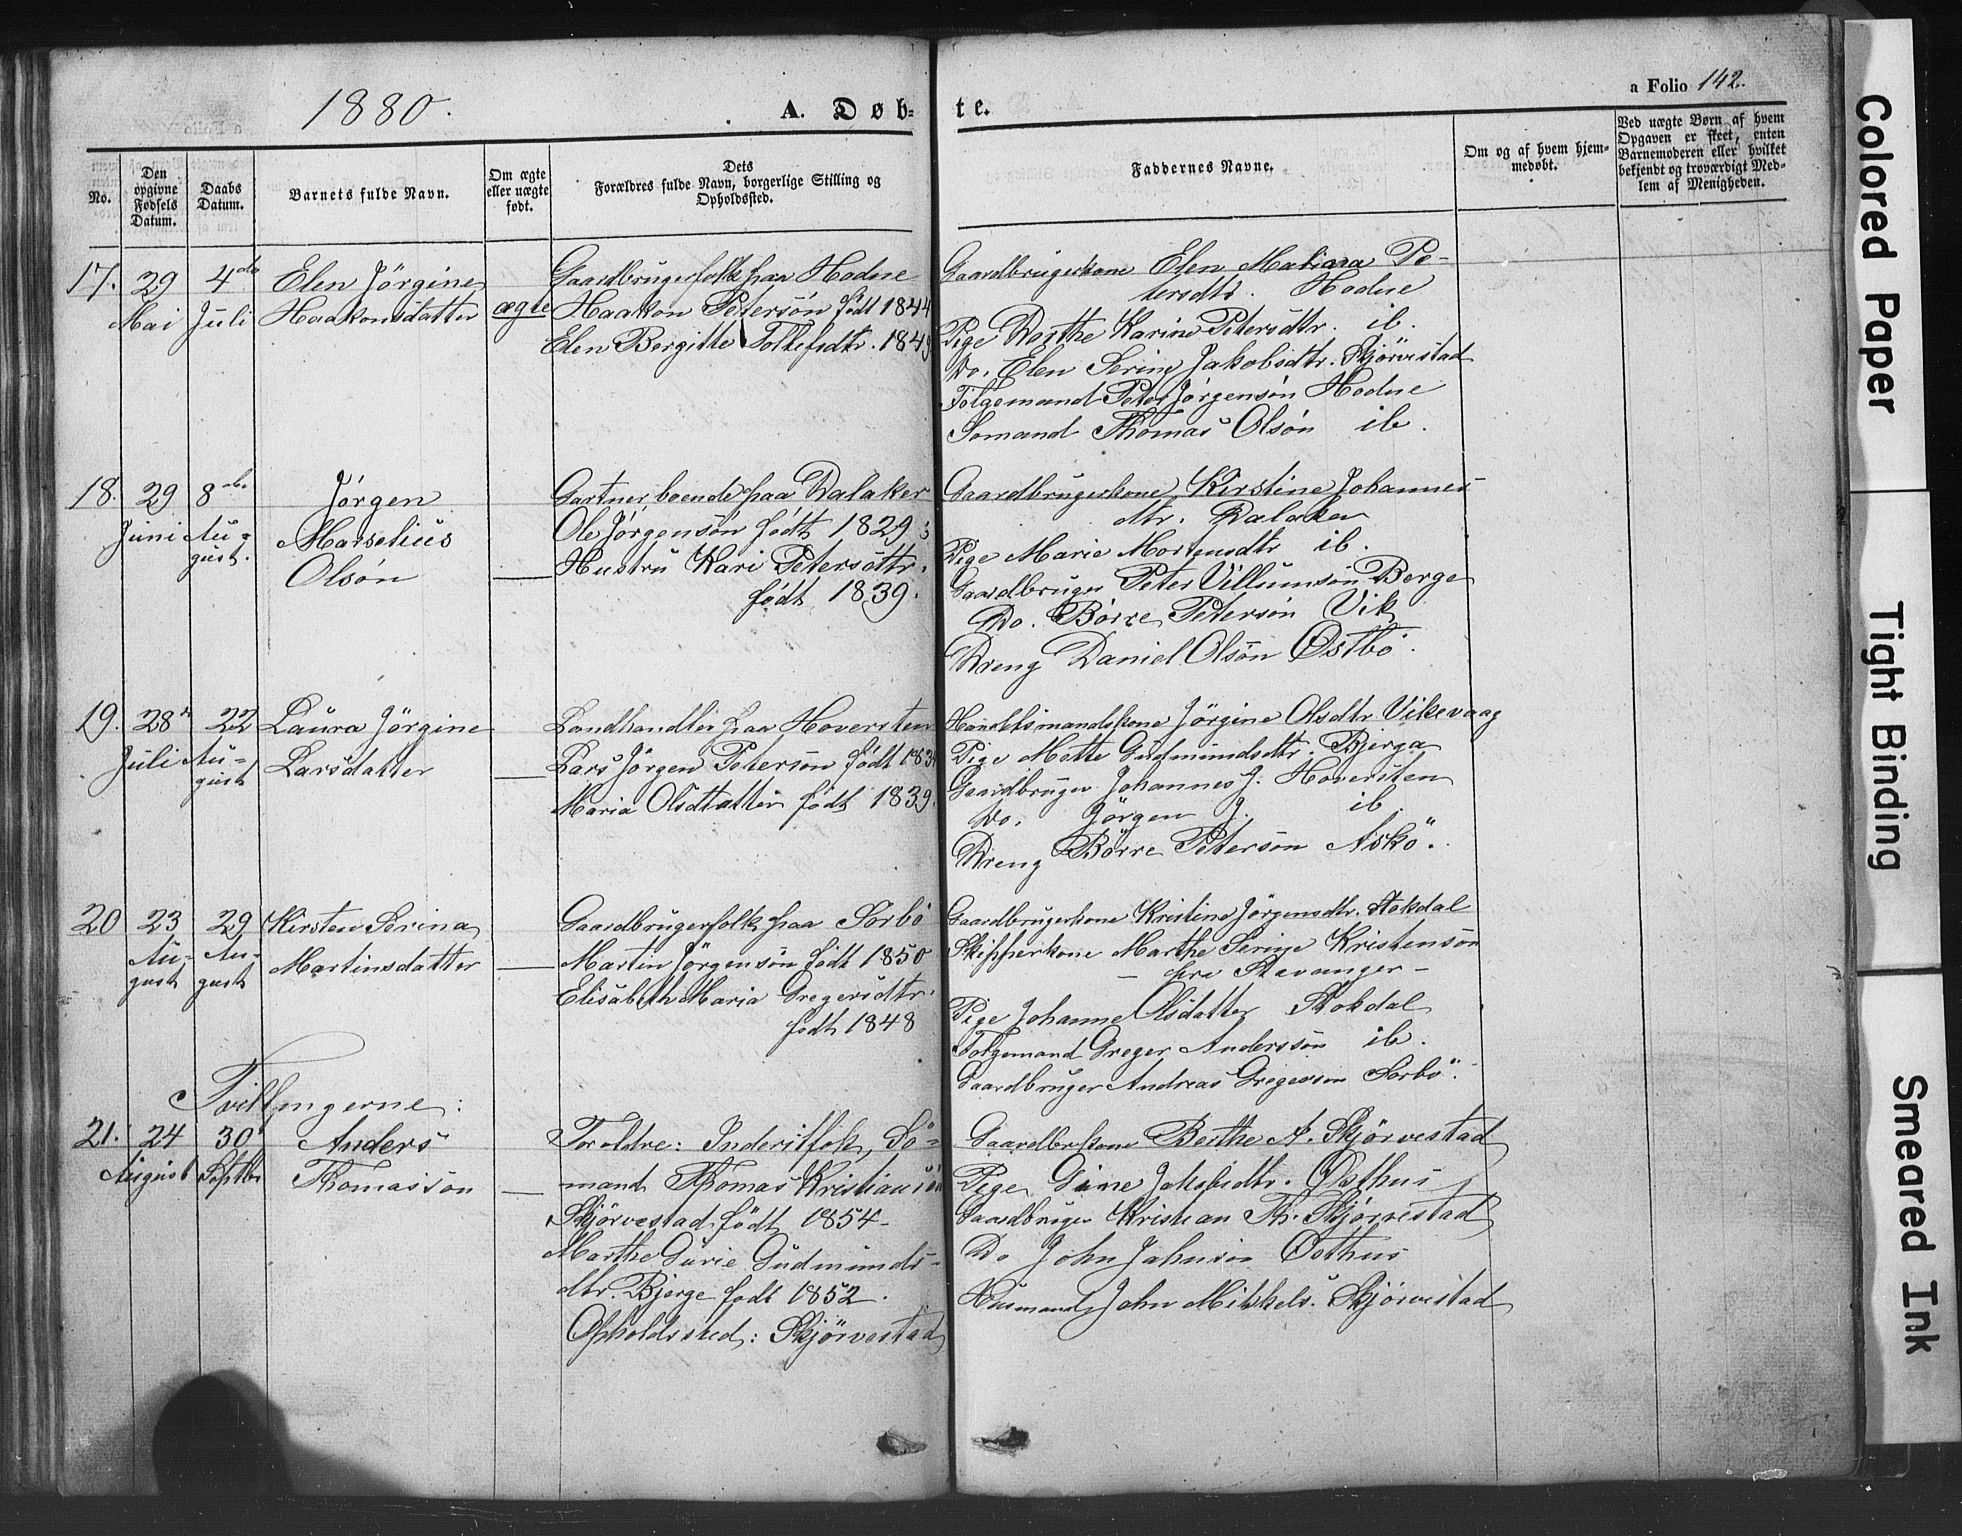 1880.
A. Døb-
te.
a Folio 142.
No.
Den opgivne Fødsels Datum.
Daabs Datum.
Barnets fulde Navn.
Om ægte eller uægte født.
Dets Forældres fulde Navn, borgerlige Stilling og Opholdssted.
Faddernes Navne.
Om og af hvem hjem-
medøbt.
Ved uægte Børn af hvem
Opgaven er skeet, enten
Barnemoderen eller hvilket
bekjendt og troværdigt Med-
lem af Menigheden.
17. 29 Mai
4de Juli
Elen Jörgine
Haakonsdatter
ægte
Gaardbrugerfolk paa Hodne
Haakon Petersön födt 1844
Elen Bergitte Tollefsdtr. 1849
Gaardbrugerkone Elen Maliana Pe-
tersdtr. Hodne
Pige Dorthe Karine Petersdtr. ib.
Do. Elen Serine Jakobsdtr. Skjörvestad
Fölgemand Peter Jörgensön Hodne
Sömand Thomas Olsön ib.
18. 29 Juni
8de Au-
gust.
Jörgen
Marselius
Olsön
Gartner, boende paa Dalaker
Ole Jörgensön födt 1829;
Hustru Kari Petersdtr.
födt 1839.
Gaardbrugerkone Kirstine Johannes-
dtr. Dalaker
Pige Marie Mortensdtr ib.
Gaardbruger Peter Villumsön Berge
Do. Börre Petersön Vik
Dreng Daniel Olsön Östbö.
19. 28 Juli
22 Au-
gust
Laura Jörgine
Larsdatter
Landhandler paa Hoversten
Lars Jörgen Petersön födt 183
Maria Olsdatter födt 1839.
Handelsmandskone Jörgine Olsdtr. Vikevaag
Pige Mette Gudmundsdtr. Bjerga
Gaardbruger Johannes J. Hoversten
Do. Jörgen J. ib.
Dreng Börre Petersön Askö.
20 23 Au-
gust
29 Au-
gust
Kirsten Serina
Martinsdatter
Gaardbrugerfolk paa Sörbö
Martin Jörgensön födt 1850
Elisabeth Maria Gregersdtr.
födt 1848
Gaardbrugerkone Kristine Jörgensdtr. Stokdal
Skipperkone Marthe Serine Kristensön
– fra Stavanger –
Pige Johanne Olsdatter Stokdal
Fölgemand Greger Anderssön ib.
Gaardbruger Andreas Gregersen Sörbö.
Tvillingerne:
21. 24 August
30 Septbr
Anders
Thomassön
Foreldre: Inderstfolk, Sö-
mand Thomas Kristiansön
Skjörvestad födt 1854 –
Marthe Gurie Gudmunds-
dtr. Bjerge födt 1852.
Opholdssted: Skjörvestad
Gaardbrkone Berthe A. Skjörvestad
Pige Sine Jakobsdtr. Östhus
Gaardbruger Kristian Th. Skjörvestad
Do John Johnsön Östhus
Husmand John Mikkels. Skjörvestad
Colored Paper
Tight Binding
Smeared Ink